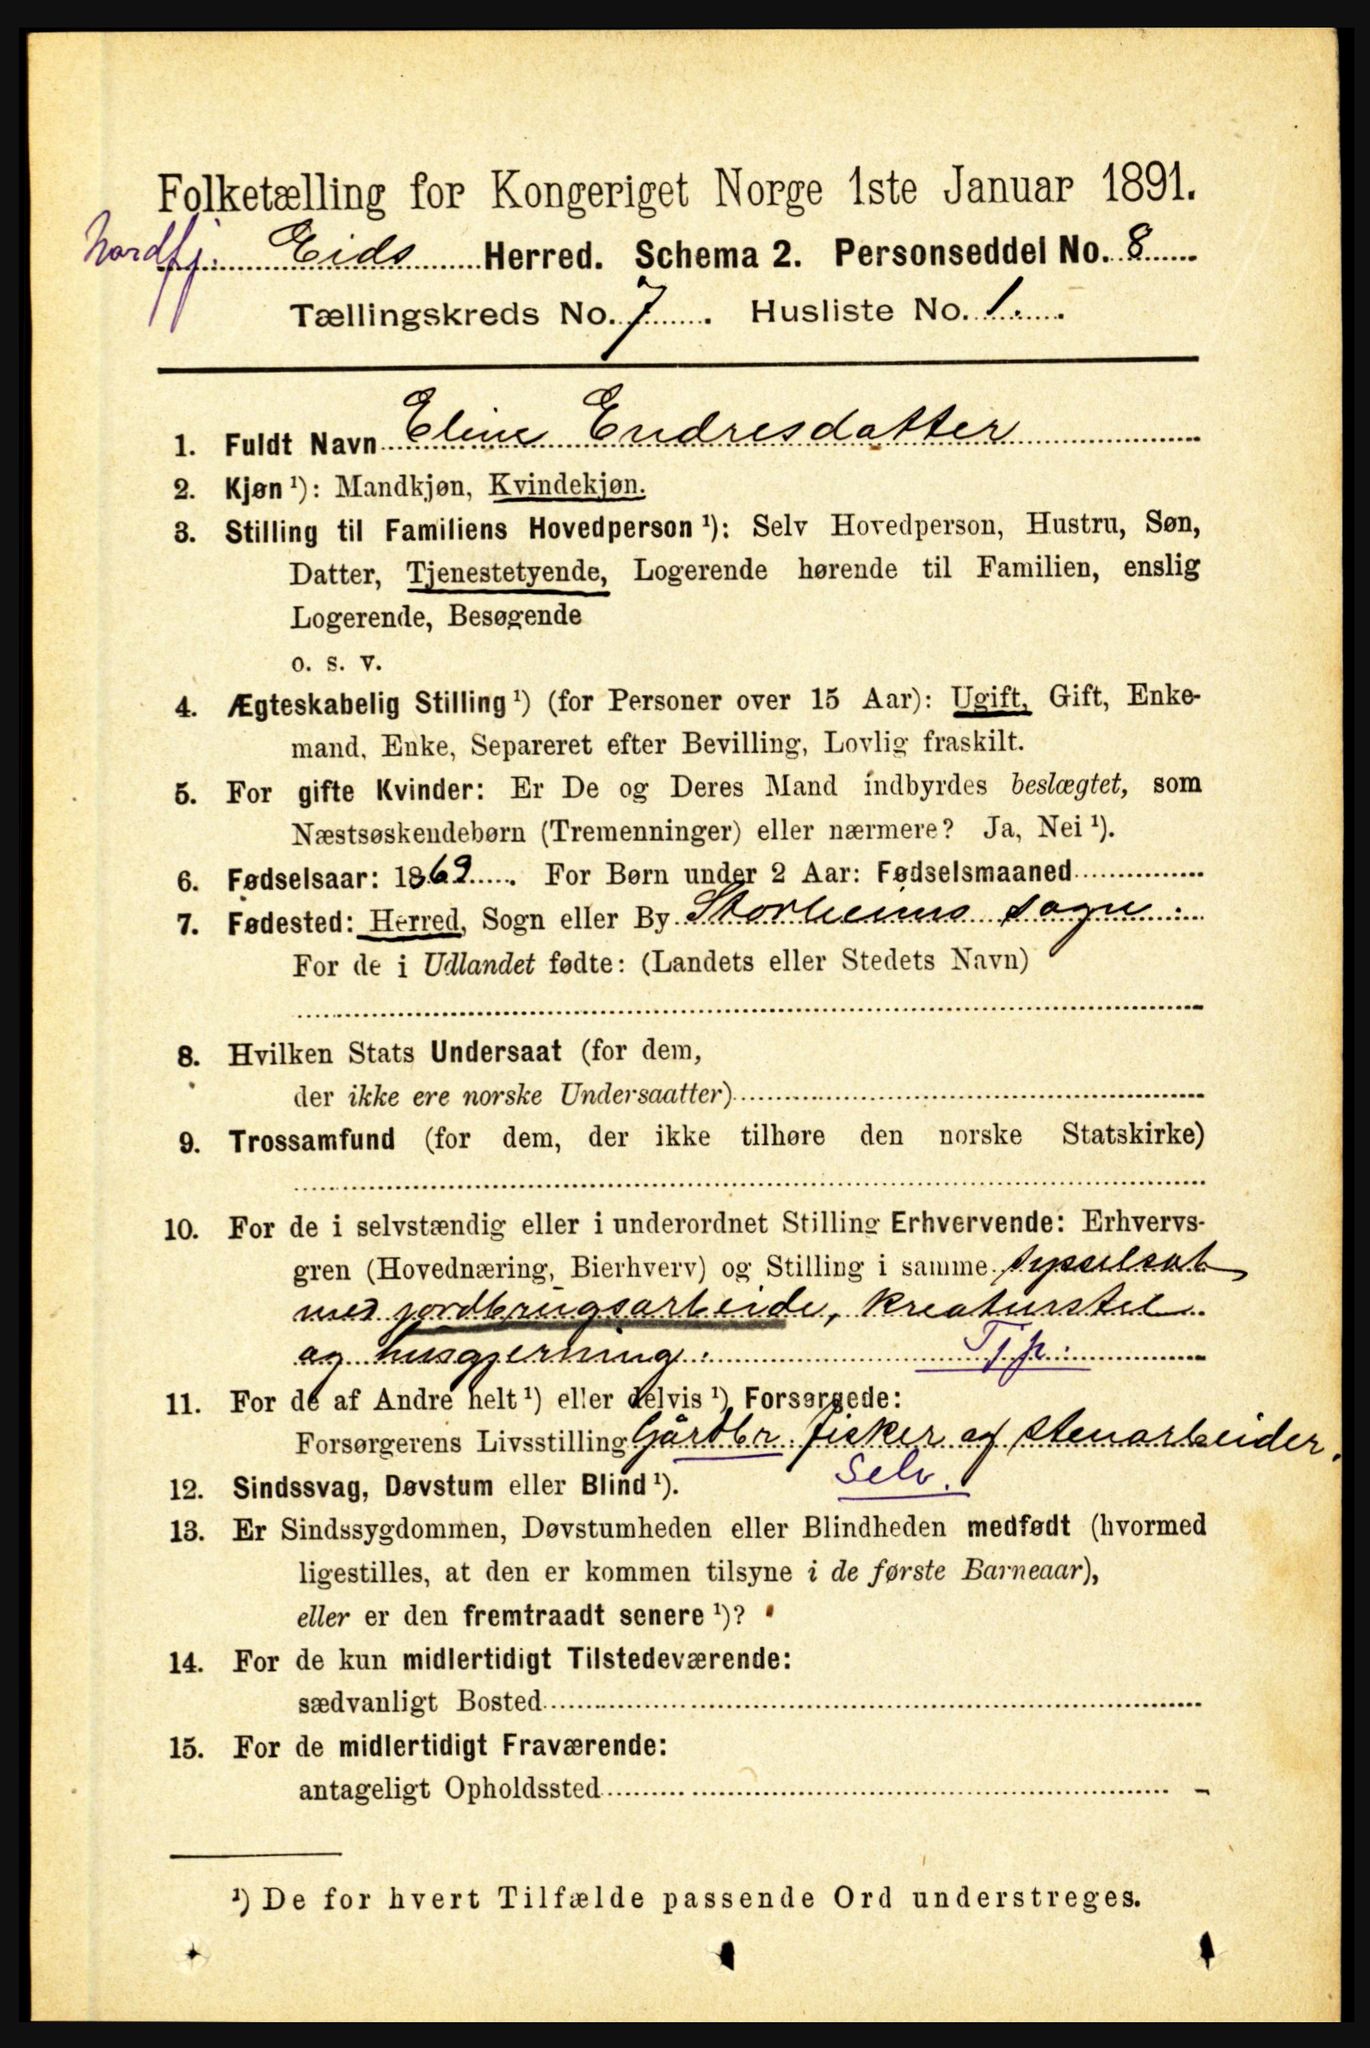 Folketælling for Kongeriget Norge 1ste Januar 1891.
Nordfj. Eids Herred. Schema 2. Personseddel No. 8
Tællingskreds No. 7. Husliste No. 1.
1. Fuldt Navn Eline Endresdatter
2. Kjøn ¹): Mandkjøn, Kvindekjøn.
3. Stilling til Familiens Hovedperson ¹): Selv Hovedperson, Hustru, Søn,
Datter, Tjenestetyende, Logerende hørende til Familien, enslig
Logerende, Besøgende
o. s. v.
4. Ægteskabelig Stilling ¹) (for Personer over 15 Aar): Ugift, Gift, Enke-
mand, Enke, Separeret efter Bevilling, Lovlig fraskilt.
5. For gifte Kvinder: Er De og Deres Mand indbyrdes beslægtet, som
Næstsøskendebørn (Tremenninger) eller nærmere? Ja, Nei ¹).
6. Fødselsaar: 1869. For Børn under 2 Aar: Fødselsmaaned
7. Fødested: Herred, Sogn eller By Storheims sogn.
For de i Udlandet fødte: (Landets eller Stedets Navn)
8. Hvilken Stats Undersaat (for dem,
der ikke ere norske Undersaatter)
9. Trossamfund (for dem, der ikke tilhøre den norske Statskirke)
10. For de i selvstændig eller i underordnet Stilling Erhvervende: Erhvervs-
gren (Hovednæring, Bierhverv) og Stilling i samme sysselsat
med jordbrugsarbeide, kreaturstel
og husgjerning. Tjp.
11. For de af Andre helt ¹) eller delvis ¹) Forsørgede:
Forsørgerens Livsstilling Gårdbr. fisker og stenarbeider.
Selv.
12. Sindssvag, Døvstum eller Blind ¹).
13. Er Sindssygdommen, Døvstumheden eller Blindheden medfødt (hvormed
ligestilles, at den er kommen tilsyne i de første Barneaar),
eller er den fremtraadt senere ¹)?
14. For de kun midlertidigt Tilstedeværende:
sædvanligt Bosted
15. For de midlertidigt Fraværende:
antageligt Opholdssted
¹) De for hvert Tilfælde passende Ord understreges.